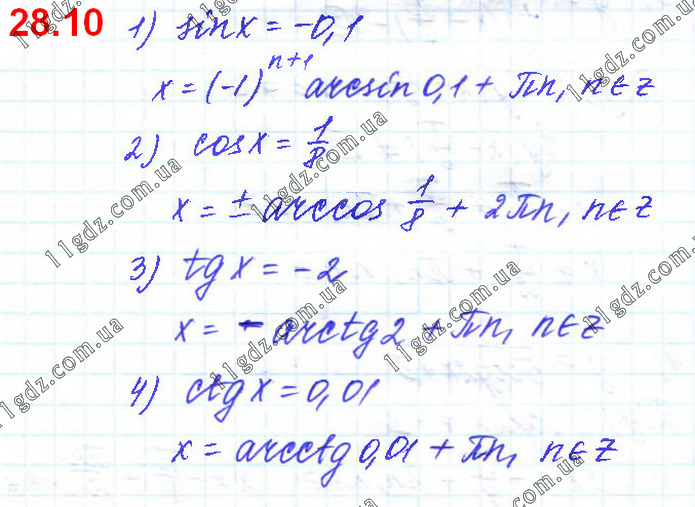 28.10
1) sin x = -0,1
x = (-1)^{n+1} arcsin 0,1 + πn, n∈Z
2) cos x = 1/8
x = ± arccos 1/8 + 2πn, n∈Z
3) tg x = -2
x = - arctg 2 + πn, n∈Z
4) ctg x = 0,01
x = arcctg 0,01 + πn, n∈Z
11gdz.com.ua
11gdz.com.ua
11gdz.com.ua
11gdz.com.ua
11gdz.com.ua
11gdz.com.ua
11gdz.com.ua
11gdz.com.ua